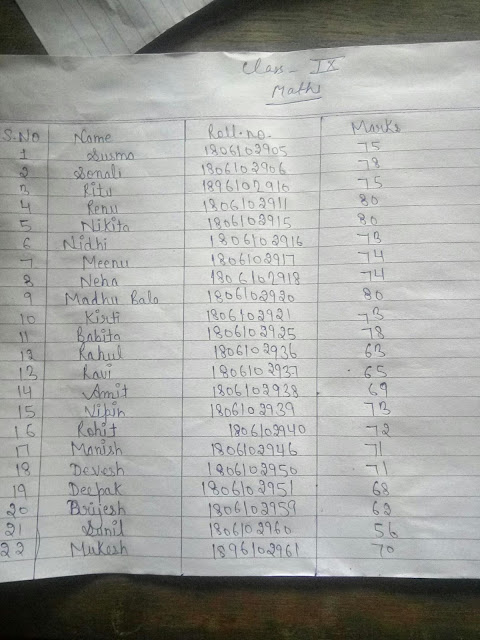 Class - IX
Maths
S.No Name Roll.no. Marks
1 Susma 1806102905 75
2 Sonali 1806102906 78
3 Ritu 1896102910 75
4 Renu 1806102911 80
5 Nikita 1806102915 80
6 Nidhi 1806102916 73
7 Meenu 1806102917 74
8 Neha 1806102918 74
9 Madhu Bala 1806102920 80
10 Kirti 1806102921 73
11 Babita 1806102925 78
12 Rahul 1806102936 63
13 Ravi 1806102937 65
14 Amit 1806102938 69
15 Nipin 1806102939 73
16 Rohit 1806102940 72
17 Manish 1806102946 71
18 Devesh 1806102950 71
19 Deepak 1806102951 68
20 Brijesh 1806102959 62
21 Sonil 1806102960 56
22 Mukesh 1896102961 70